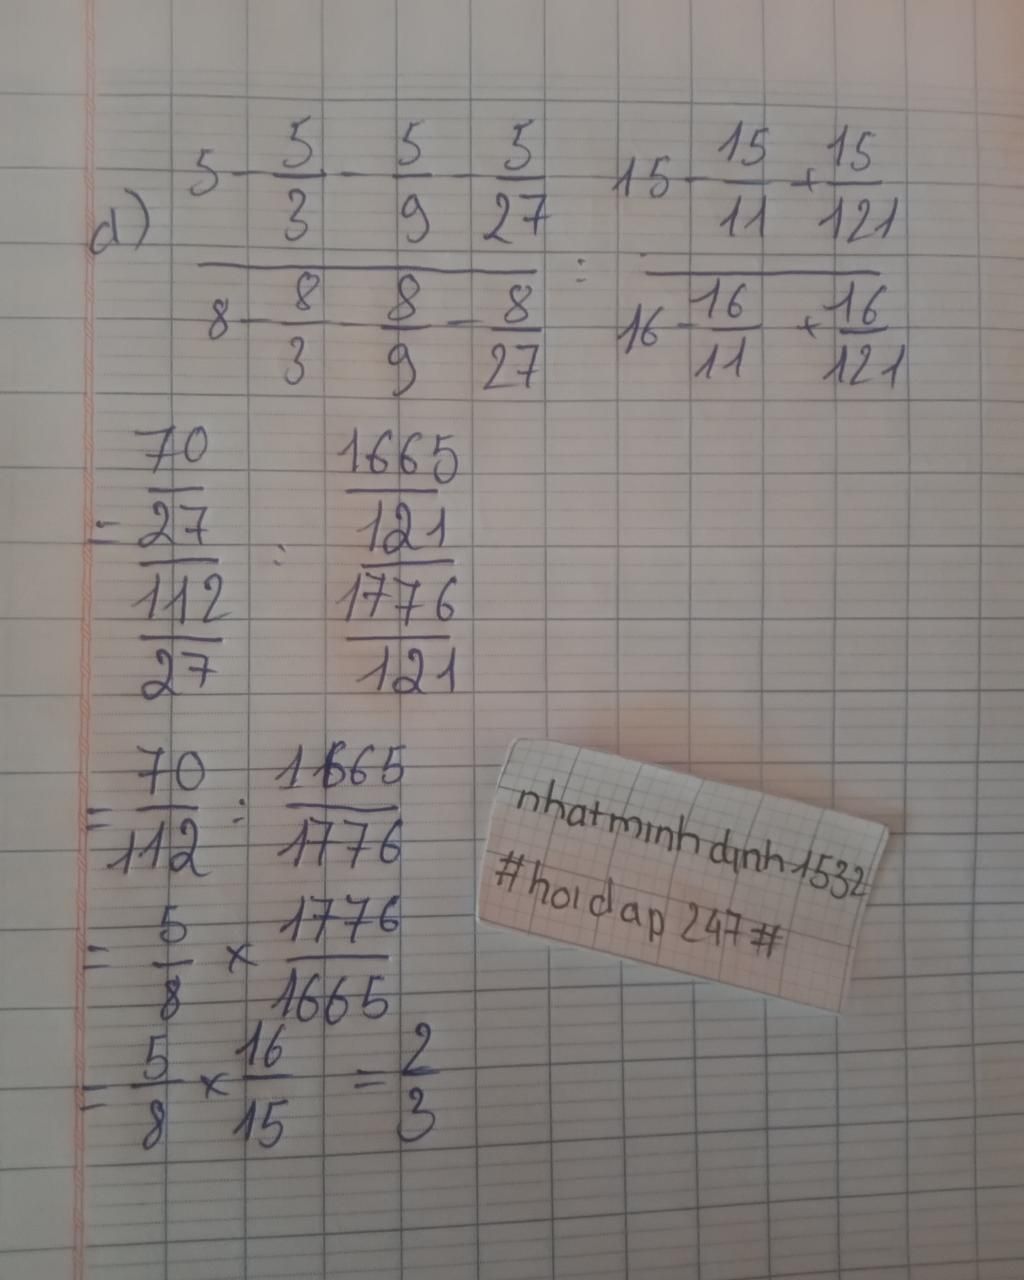 5 - 5/3 - 5/9 - 5/27 15 - 15/11 + 15/121
d) ──────── : ────────
8 - 8/3 - 8/9 - 8/27 16 - 16/11 + 16/121
= 70/27 / 112/27 : 1665/121 / 1776/121
= 70/112 : 1665/1776
= 5/8 × 1776/1665
= 5/8 × 16/15 = 2/3
nhatminhdinh1532
#hoidap247#